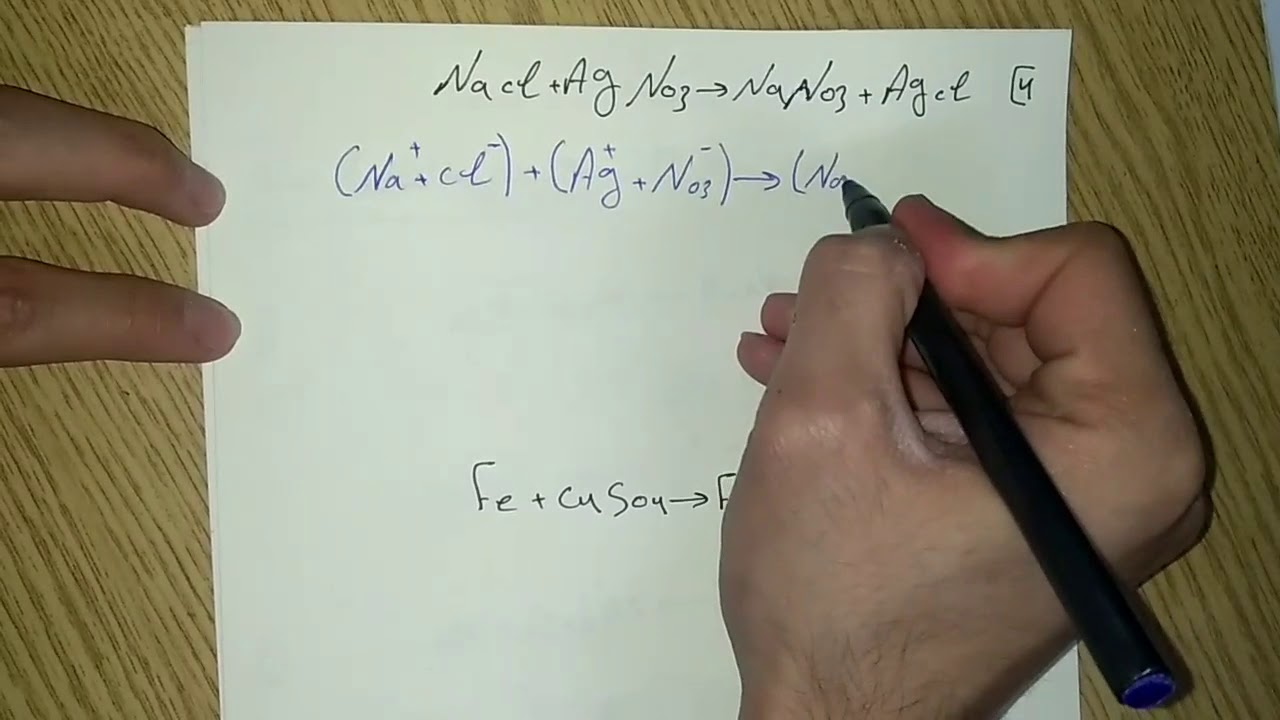 NaCl + AgNO3 → NaNO3 + AgCl [4
(Na⁺ + Cl⁻) + (Ag⁺ + NO3⁻) → (No
Fe + CuSO4 → F